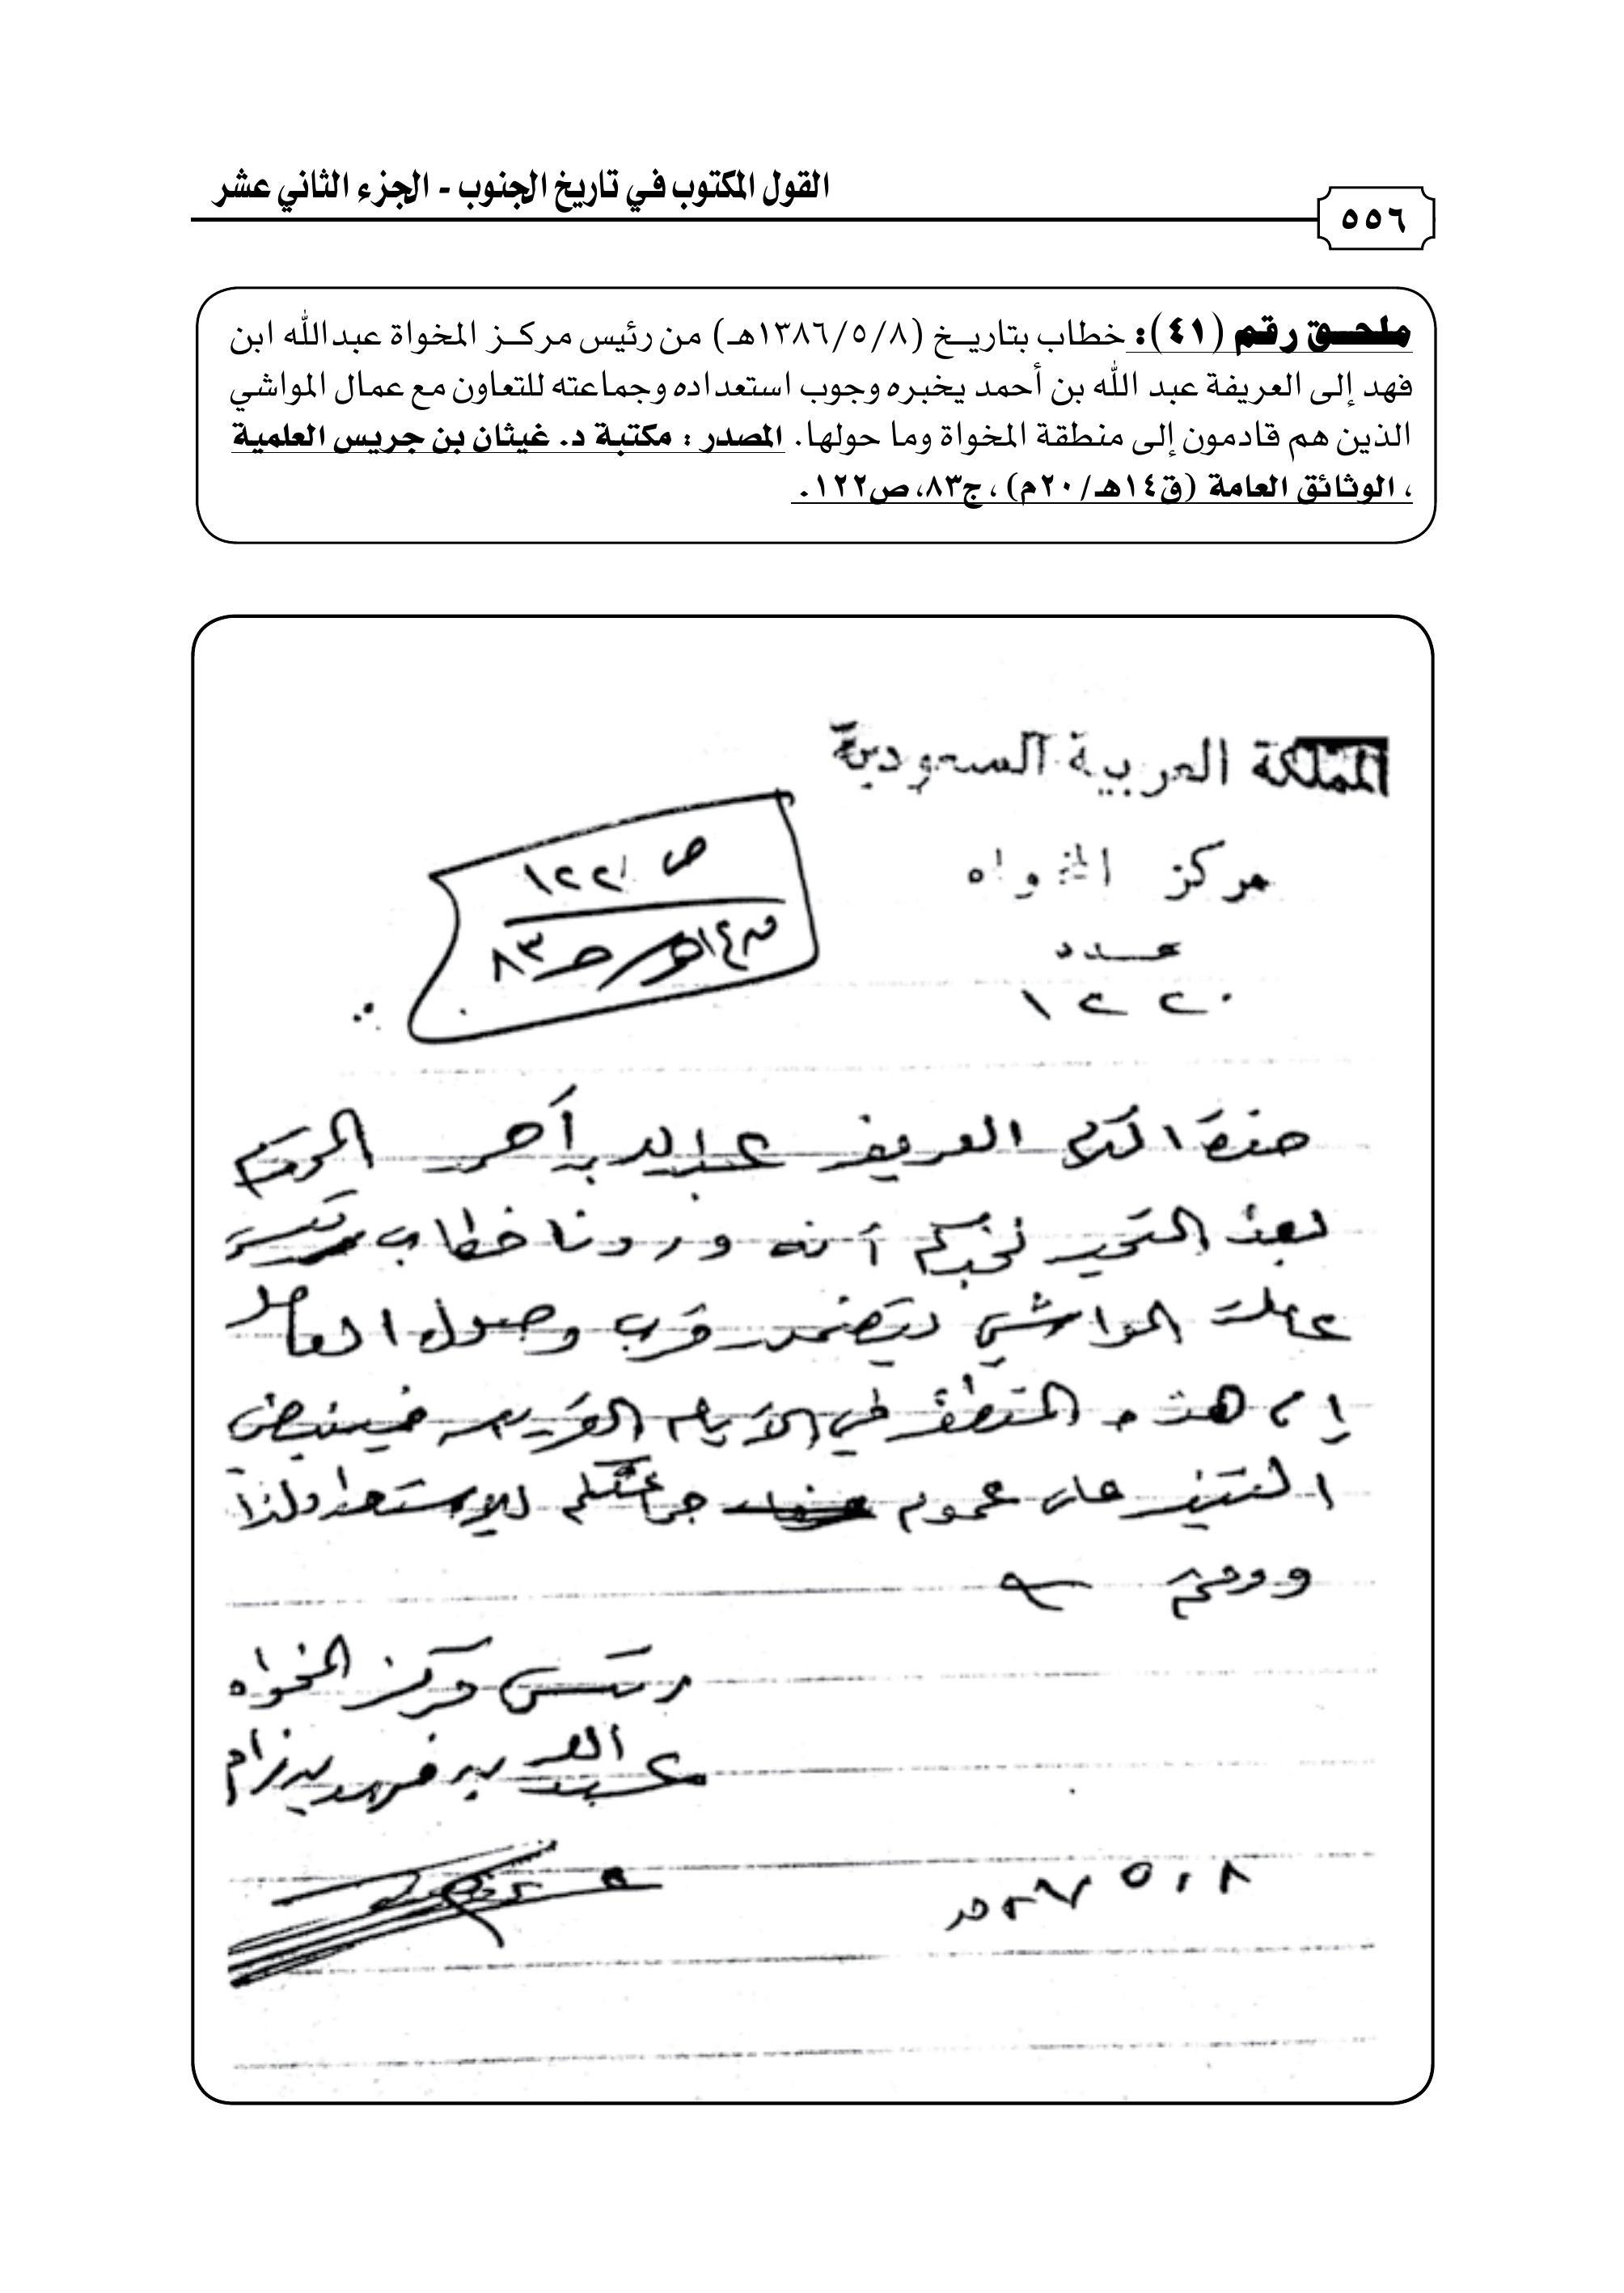 القول المكتوب في تاريخ الجنوب - الجزء الثاني عشر
٥٥٦
ملحق رقم (٤١): خطاب بتاريخ (١٣٨٦/٥/٨هـ) من رئيس مركز المخواة عبدالله ابن
فهد إلى العريفة عبد الله بن أحمد يخبره وجوب استعداده وجماعته للتعاون مع عمال المواشي
الذين هم قادمون إلى منطقة المخواة وما حولها. المصدر : مكتبة د. غيثان بن جريس العلمية
، الوثائق العامة (ق١٤هـ/٢٠م) ، ج٨٣، ص١٢٢.
المملكة العربية السعودية
مركز المخواه
عدد
١٢٢٠
ص ١٢٢
ق١٤هـ ج ٨٣
حضرة المكرم العريفه عبدالله بن أحمد المحترم
بعد التحيه نخبركم أنه وردنا خطاب رئيس
عاملة المواشي يتضمن قرب وصول العامله
إلى هذه المنطقه في الأيام القريبه فينبغي
التنبيه على عموم جماعتكم للاستعداد لذا
ودمتم
رئيس مركز المخواه
عبدالله بن فهد بن زام
٨ ، ٥